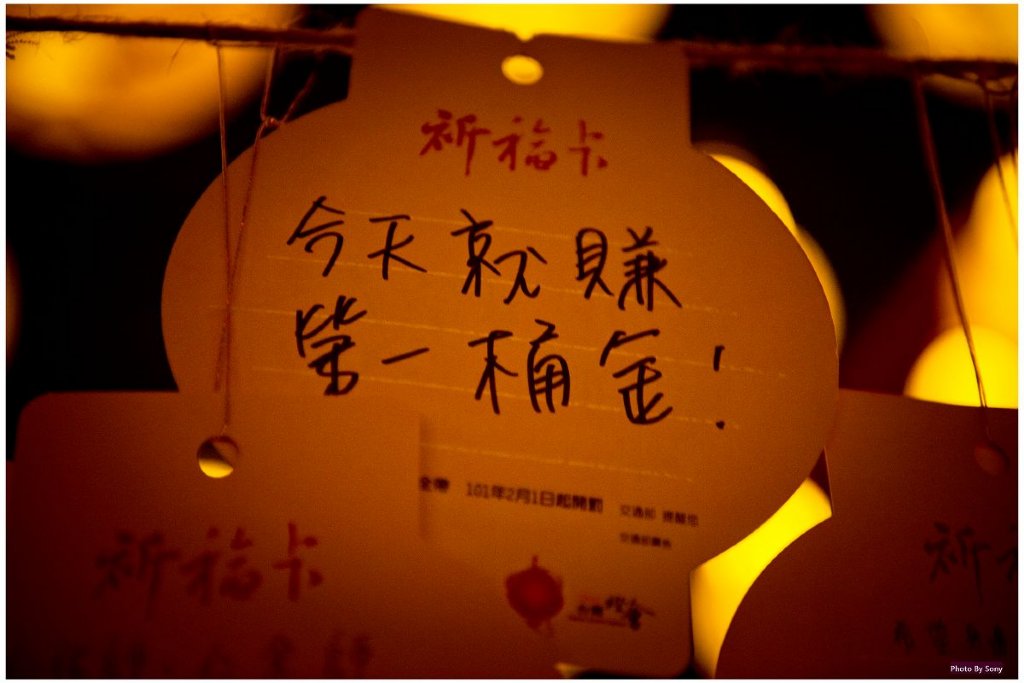 祈福卡
今天就賺
第一桶金!
全帶 101年2月1日起開罰
交通部 提醒您
交通部廣告
台灣燈會
祈福卡
祈
Photo By Sony